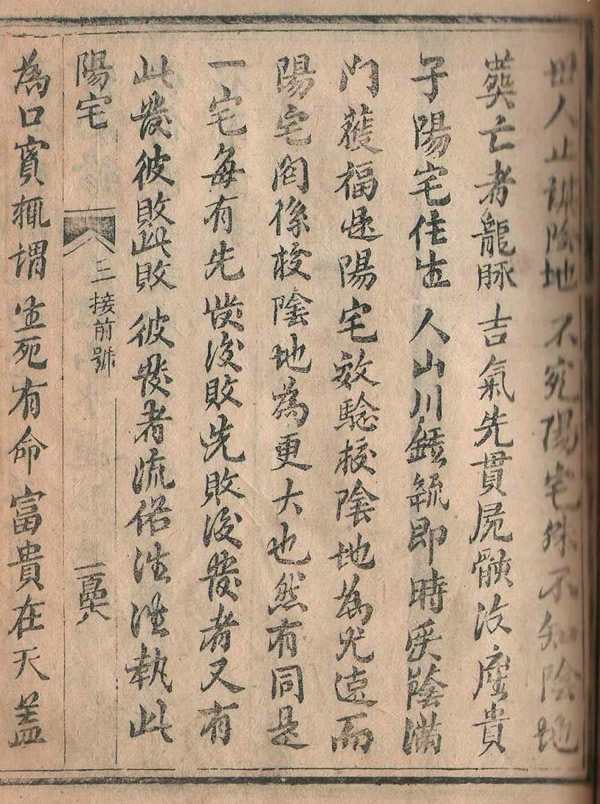 世人止講陰地不究陽宅殊不知陰地
葬亡者龍脉吉氣先貫屍骸沒産貴
子陽宅住生人山川鍾毓即時受蔭滿
门䕶福是陽宅效驗校陰地為尤速而
陽宅関係校陰地為更大也然有同是
一宅每有先發後敗先敗後發者又有
此發彼敗此敗彼發者流俗往往執此
陽宅
三接前號
一百四十八
為口實輒謂生死有命富貴在天蓋